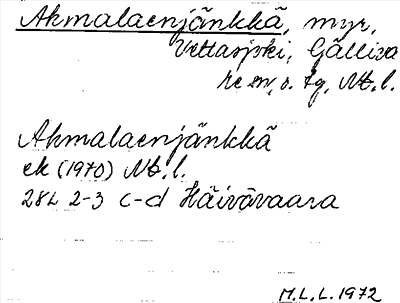 Akmalaenjänkkä, myr,
Vettasjoki, Gälliva
re sn, o. tg, Nb. l.
Akmalaenjänkkä
ek (1970) Nb. l.
28L 2-3 c-d Häivävaara
M.L.L. 1972